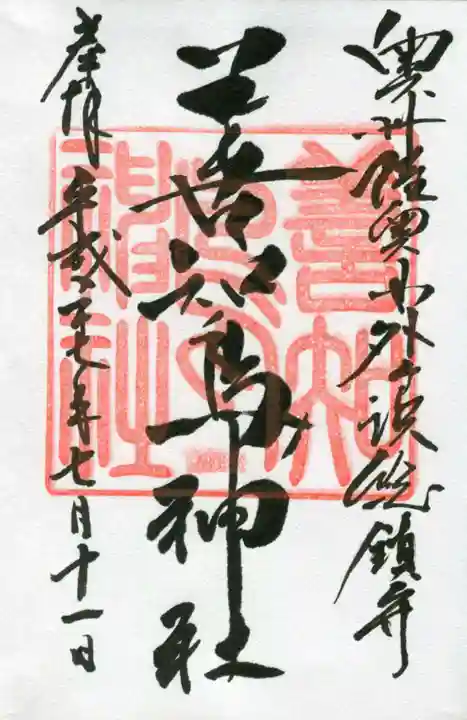 奥州陸奥国外ヶ浜総鎮守
善知鳥神社
奉拝 平成二十七年七月十一日
善知
鳥
神社